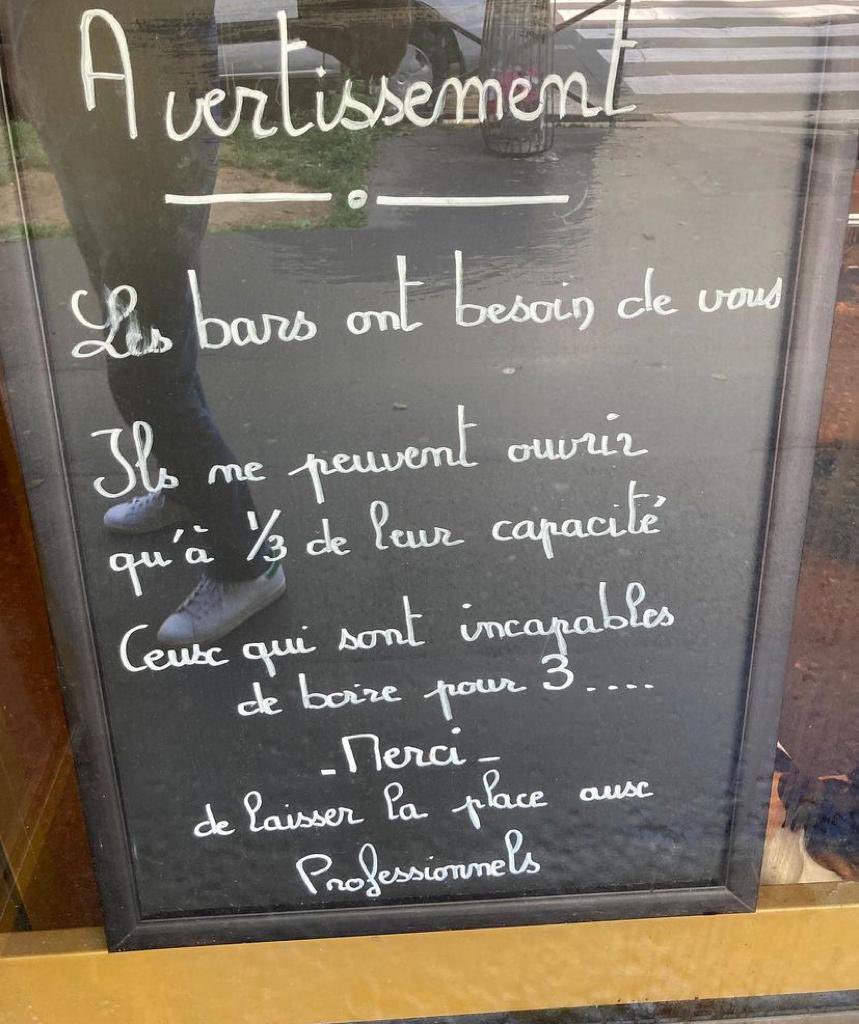 Avertissement
Les bars ont besoin de vous
Ils ne peuvent ouvrir
qu'à 1/3 de leur capacité
Ceux qui sont incapables
de boire pour 3....
- Merci -
de laisser la place aux
Professionnels